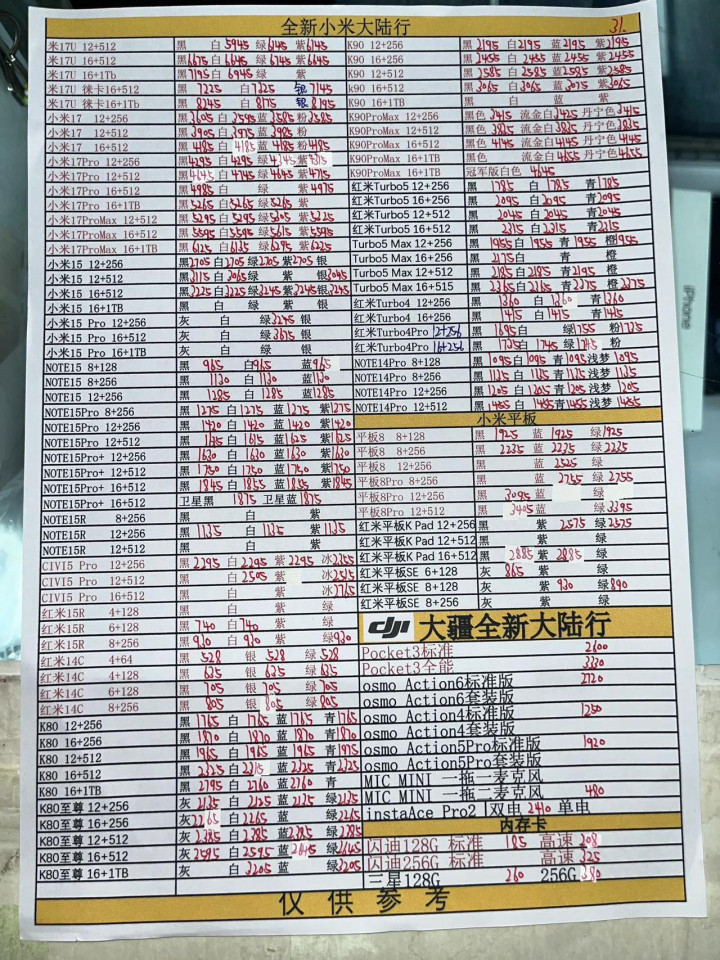 全新小米大陆行 31.
米17U 12+512 黑 白5945 绿6145 紫6145
米17U 16+512 黑6675 白6645 绿6745 紫6645
米17U 16+1Tb 黑7195 白6945 绿 紫
米17U 徕卡16+512 黑 7225 白7225 银7145
米17U 徕卡16+1Tb 黑 8245 白 8175 银8195
小米17 12+256 黑3605 白3595 蓝3585 粉3585
小米17 12+512 黑3905 白3975 绿3985 粉
小米17 16+512 黑4185 白4185 蓝4185 粉4185
小米17Pro 12+256 黑4295 白4295 绿4345 紫
小米17Pro 12+512 黑4645 白4745 绿4645 紫4715
小米17Pro 16+512 黑4985 白 绿 紫4975
小米17Pro 16+1TB 黑5265 白5265 绿5265 紫
小米17ProMax 12+512 黑5295 白5295 绿5205 紫5225
小米17ProMax 16+512 黑5595 白5595 绿5615 紫5595
小米17ProMax 16+1TB 黑6125 白6135 绿6295 紫6225
小米15 12+256 黑2705 白2705 绿2705 紫2705 银
小米15 12+512 黑3115 白3065 绿 紫 银3045
小米15 16+512 黑3225 白3225 绿3245 紫3245 银3245
小米15 16+1TB 黑 白 绿 紫 银
小米15 Pro 12+256 灰 白 绿3245 银
小米15 Pro 16+512 灰 白 绿3675 银
小米15 Pro 16+1TB 灰 白 绿 银
NOTE15 8+128 黑 965 白965 蓝965
NOTE15 8+256 黑 1130 白1130 蓝1130
NOTE15 12+256 黑 1285 白 1285 蓝1285
NOTE15Pro 8+256 黑 1275 白1275 蓝1275 紫1275
NOTE15Pro 12+256 黑 1420 白1420 蓝1420 紫1420
NOTE15Pro 12+512 黑 1645 白1615 蓝1625 紫1625
NOTE15Pro+ 12+256 黑 1630 白1630 蓝1630 紫1630
NOTE15Pro+ 12+512 黑 1750 白1750 蓝1750 紫1750
NOTE15Pro+ 16+512 黑 1845 白1855 蓝1855 紫1845
NOTE15Pro+ 16+512 卫星黑 1875 卫星蓝1875
NOTE15R 8+256 黑 白 紫
NOTE15R 12+256 黑 1135 白 1135 紫1135
NOTE15R 12+512 黑 白 紫
CIVI5 Pro 12+256 黑 2295 白2295 紫2295 冰2255
CIVI5 Pro 12+512 黑 白2505 紫 冰2515
CIVI5 Pro 16+512 黑 白 紫 冰2765
红米15R 4+128 黑 白 紫 绿
红米15R 6+128 黑 740 白740 紫 绿
红米15R 8+256 黑 930 白 930 紫 绿930
红米14C 4+64 黑 528 银 528 绿528
红米14C 4+128 黑 635 银 635 绿635
红米14C 6+128 黑 705 银705 绿705
红米14C 8+256 黑 805 银805 绿805
K80 12+256 黑 1765 白 1765 蓝1765 青1765
K80 16+256 黑 1870 白 1870 蓝1870 青1870
K80 12+512 黑 1965 白 1965 蓝1965 青1975
K80 16+512 黑 2325 白 2315 蓝2325 青2325
K80 16+1TB 黑 2795 白 2760 蓝2760 青
K80至尊 12+256 灰 2135 白 2125 蓝2125 绿2135
K80至尊 16+256 灰2265 白 2265 蓝 绿2265
K80至尊 12+512 灰 2385 白 2385 蓝2385 绿2385
K80至尊 16+512 灰 2595 白 2595 蓝2645 绿2645
K80至尊 16+1TB 灰 白 3205 蓝 绿3205
K90 12+256 黑2195 白2195 蓝2195 紫2195
K90 16+256 黑2455 白 2455 蓝2455 紫2455
K90 12+512 黑2585 白2585 蓝2585 紫2585
k90 16+512 黑3065 白3065 蓝3075 紫3065
K90 16+1TB 黑 白 蓝 紫
K90ProMax 12+256 黑色 3415 流金白3425 丹宁色3415
K90ProMax 12+512 黑色 3825 流金白3825 丹宁色3835
K90ProMax 16+512 黑色 4145 流金白4145 丹宁色4145
K90ProMax 16+1TB 黑色 流金白4655 丹宁色4655
K90ProMax 16+1TB 冠军版白色 4645
红米Turbo5 12+256 黑 1785 白 1785 青1785
红米Turbo5 16+256 黑 2095 白2095 青2095
红米Turbo5 12+512 黑 2045 白2045 青2045
红米Turbo5 16+512 黑 2315 白2315 青2315
Turbo5 Max 12+256 黑1955 白1955 青1955 橙1955
Turbo5 Max 16+256 黑2175 白 青 橙
Turbo5 Max 12+512 黑2185 白2185 青2195 橙
Turbo5 Max 16+515 黑2365 白2165 青2375 橙2375
红米Turbo4 12+256 黑 1360 白 1360 青1360
红米Turbo4 16+256 黑 1415 白1415 青1415
红米Turbo4Pro 12+256 黑 1695 白 绿1755 粉1725
红米Turbo4Pro 16+256 黑 1735 白1745 绿1745 粉
NOTE14Pro 8+128 黑1095 白1095 青1095 浅梦1095
NOTE14Pro 8+256 黑1135 白1135 青1135 浅梦1135
NOTE14Pro 12+256 黑1205 白1205 青1205 浅梦1205
NOTE14Pro 12+512 黑1455 白1455 青1455 浅梦1455
小米平板
平板8 8+128 黑 1925 蓝 1925 绿1925
平板8 8+256 黑 2235 蓝 2235 绿2235
平板8 12+256 黑 蓝 2525 绿
平板8Pro 8+256 黑 蓝 2755 绿 2755
平板8Pro 12+256 黑 3095 蓝 绿
平板8Pro 12+512 黑 3405 蓝 绿3395
红米平板K Pad 12+256 黑 紫 2575 绿2575
红米平板K Pad 12+512 黑 紫 绿
红米平板K Pad 16+512 黑 2885 紫 2885 绿
红米平板SE 6+128 灰 865 紫 绿
红米平板SE 8+128 灰 紫 930 绿890
红米平板SE 8+256 灰 紫 绿
dji 大疆全新大陆行
Pocket3标准 2600
Pocket3全能 3330
osmo Action6标准版 2120
osmo Action6套装版
osmo Action4标准版 1250
osmo Action4套装版
osmo Action5Pro标准版 1920
osmo Action5Pro套装版
MIC MINI 一拖一麦克风
MIC MINI 一拖二麦克风 480
instaAce Pro2 双电 2410 单电
内存卡
闪迪128G 标准 185 高速 208
闪迪256G 标准 高速 325
三星128G 260 256G 380
仅供参考
iPhone